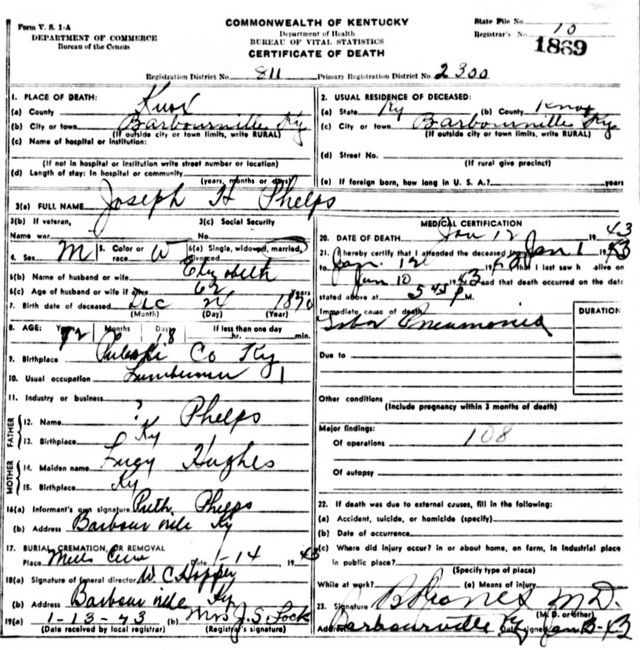 Form V. S. 1-A
DEPARTMENT OF COMMERCE
Bureau of the Census
COMMONWEALTH OF KENTUCKY
Department of Health
BUREAU OF VITAL STATISTICS
CERTIFICATE OF DEATH
State File No.
Registrar's No. 10
1869
Registration District No. 811 Primary Registration District No. 2300
1. PLACE OF DEATH:
(a) County Knox
(b) City or town Barbourville Ky
(If outside city or town limits, write RURAL)
(c) Name of hospital or institution:
(If not in hospital or institution write street number or location)
(d) Length of stay: In hospital or community
(years, months or days)
2. USUAL RESIDENCE OF DECEASED:
(a) State Ky (b) County Knox
(c) City or town Barbourville Ky
(If outside city or town limits, write RURAL)
(d) Street No.
(If rural give precinct)
(e) If foreign born, how long in U. S. A.? years
3(a) FULL NAME Joseph H Phelps
3(b) If veteran, Name war
3(c) Social Security No.
4. Sex M 5. Color or race W 6(a) Single, widowed, married, divorced
6(b) Name of husband or wife Elizabeth
6(c) Age of husband or wife if alive 62 years
7. Birth date of deceased Dec 1870
(Month) (Day) (Year)
8. AGE: 72 Months Days 18 If less than one day
hr. min.
9. Birthplace Pulaski Co Ky
10. Usual occupation Lumberman
11. Industry or business
FATHER
12. Name ? Phelps
13. Birthplace Ky
MOTHER
14. Maiden name Lucy Hughes
15. Birthplace Ky
16(a) Informant's own signature Ruth Phelps
(b) Address Barbourville Ky
17. BURIAL, CREMATION, OR REMOVAL
Place Mills Cem Date 1-14 1943
18(a) Signature of funeral director W C Hopper
(b) Address Barbourville Ky
19(a) 1-13-43 (b) Mrs J. S. Lock
(Date received by local registrar) (Registrar's signature)
MEDICAL CERTIFICATION
20. DATE OF DEATH Jan 12 1943
21. I hereby certify that I attended the deceased from Jan 1 1943
to Jan. 12 19 that I last saw h alive on
Jan 10 1943 and that death occurred on the date
stated above at 5 45 P M.
Immediate cause of death
Lobar Pneumonia
DURATION
Due to
Other conditions
(Include pregnancy within 3 months of death)
Major findings:
Of operations 108
Of autopsy
22. If death was due to external causes, fill in the following:
(a) Accident, suicide, or homicide (specify)
(b) Date of occurrence
(c) Where did injury occur? in or about home, on farm, in industrial place
in public place?
(Specify type of place)
While at work? (e) Means of injury
23. Signature M.D.
(M. D. or other)
Address Barbourville Ky Date signed Jan 43